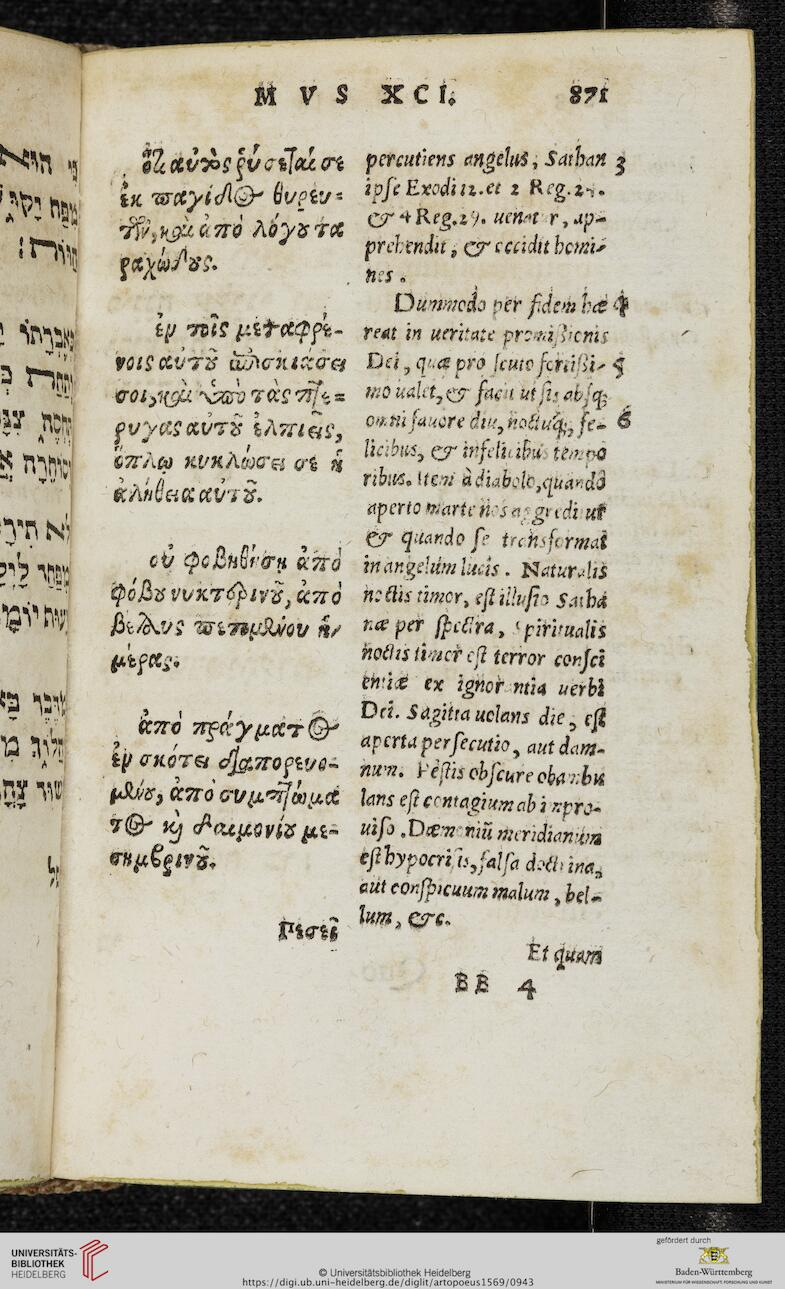 M V S XCI. 871
ὅτι αὐτὸς ῥύσεταί σε
ἐκ παγίδος θηρευ=
τῶν, καὶ ἀπὸ λόγου τα
ραχώδους.
ἐν τοῖς μεταφρέ-
νοις αὐτοῦ ἐπισκιάσει
σοι, καὶ ὑπὸ τὰς πτέ=
ρυγας αὐτοῦ ἐλπιεῖς,
ὅπλῳ κυκλώσει σε ἡ
ἀλήθεια αὐτοῦ.
οὐ φοβηθήσῃ ἀπὸ
φόβου νυκτερινοῦ, ἀπὸ
βέλους πετομένου ἡ/
μέρας.
ἀπὸ πράγματος
ἐν σκότει διαπορευο-
μένου, ἀπὸ συμπτώμα
τος καὶ δαιμονίου με-
σημβρινοῦ.
percutiens angelus, Sathan 3
ipse Exodi 12. et 2 Reg. 24.
& 4 Reg. 19. uenatur, ap-
prehendit, & occidit homi-
nes.
Dummodo per fidem hæ 4
reat in ueritate promißionis
Dei, quæ pro scuto fortißi- 5
mo ualet, & facit ut sis absq;
omni fauore diu, noctuq;, fe- 6
licibus, & infelicibus tempo
ribus. Item à diabolo, quando
aperto marte nos aggreditur
& quando se transformat
in angelum lucis. Naturalis
noctis timor, est illusio Satha
næ per spectra, spiritualis
noctis timor est terror consci
entiæ ex ignorantia uerbi
Dei. Sagitta uolans die, est
aperta persecutio, aut dam-
num. Pestis obscure obambu
lans est contagium ab impro-
uiso. Dæmoniũ meridianum
est hypocrisis, falsa doctrina,
aut conspicuum malum, bel-
lum, &c.
Et quam
BB 4
UNIVERSITÄTS-
BIBLIOTHEK
HEIDELBERG
© Universitätsbibliothek Heidelberg
https://digi.ub.uni-heidelberg.de/diglit/artopoeus1569/0943
gefördert durch
Baden-Württemberg
MINISTERIUM FÜR WISSENSCHAFT, FORSCHUNG UND KUNST